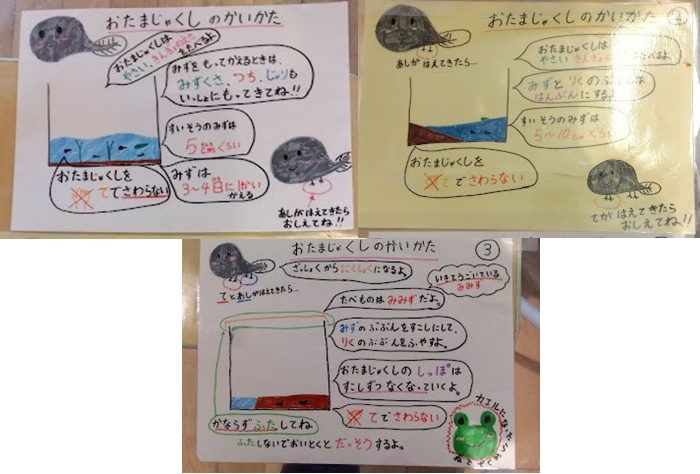 おたまじゃくしのかいかた
おたまじゃくしは
やさい、きんぎょのえさ
をたべるよ
みずを もってかえるときは、
みずくさ、つち、じゃりも
いっしょにもってきてね!!
すいそうのみずは
5cmくらい
おたまじゃくしを
てでさわらない
みずは
3〜4日に1かい
かえる
あしがはえてきたら
おしえてね!!
おたまじゃくしのかいかた
2
あしがはえてきたら…
おたまじゃくしは
やさい
たべるよ。
みずとりくのぶぶんは
はんぶんにするよ。
すいそうのみずは
5〜10cmくらい
おたまじゃくしを
てでさわらない
てがはえてきたら
おしえてね!!
おたまじゃくしのかいかた
3
てとあしがはえてきたら…
ざっしょくからにくしょくになるよ。
いきてうごいている
みみず
たべものはみみずだよ。
みずのぶぶんをすこしにして、
りくのぶぶんをふやすよ。
おたまじゃくしのしっぽは
すこしずつなくなっていくよ。
てでさわらない
かならずふたしてね
ふたしないでおいとくとだっそうするよ。
カエルになった